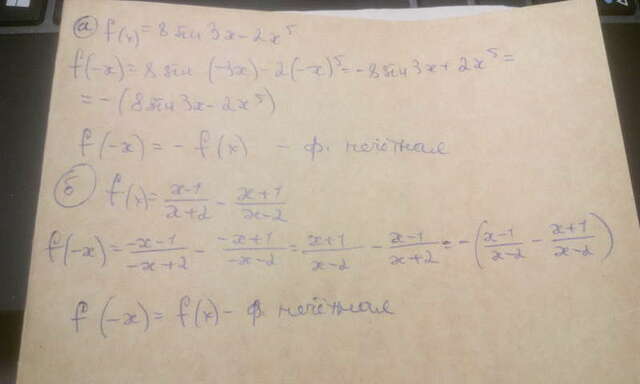 а) f(x) = 8 sin 3x - 2x⁵
f(-x) = 8 sin (-3x) - 2(-x)⁵ = -8 sin 3x + 2x⁵ =
= - (8 sin 3x - 2x⁵)
f(-x) = - f(x) - ф. нечётная
б) f(x) = (x-1)/(x+2) - (x+1)/(x-2)
f(-x) = (-x-1)/(-x+2) - (-x+1)/(-x-2) = (x+1)/(x-2) - (x-1)/(x+2) = -((x-1)/(x-2) - (x+1)/(x-2))
f(-x) = f(x) - ф. нечётная